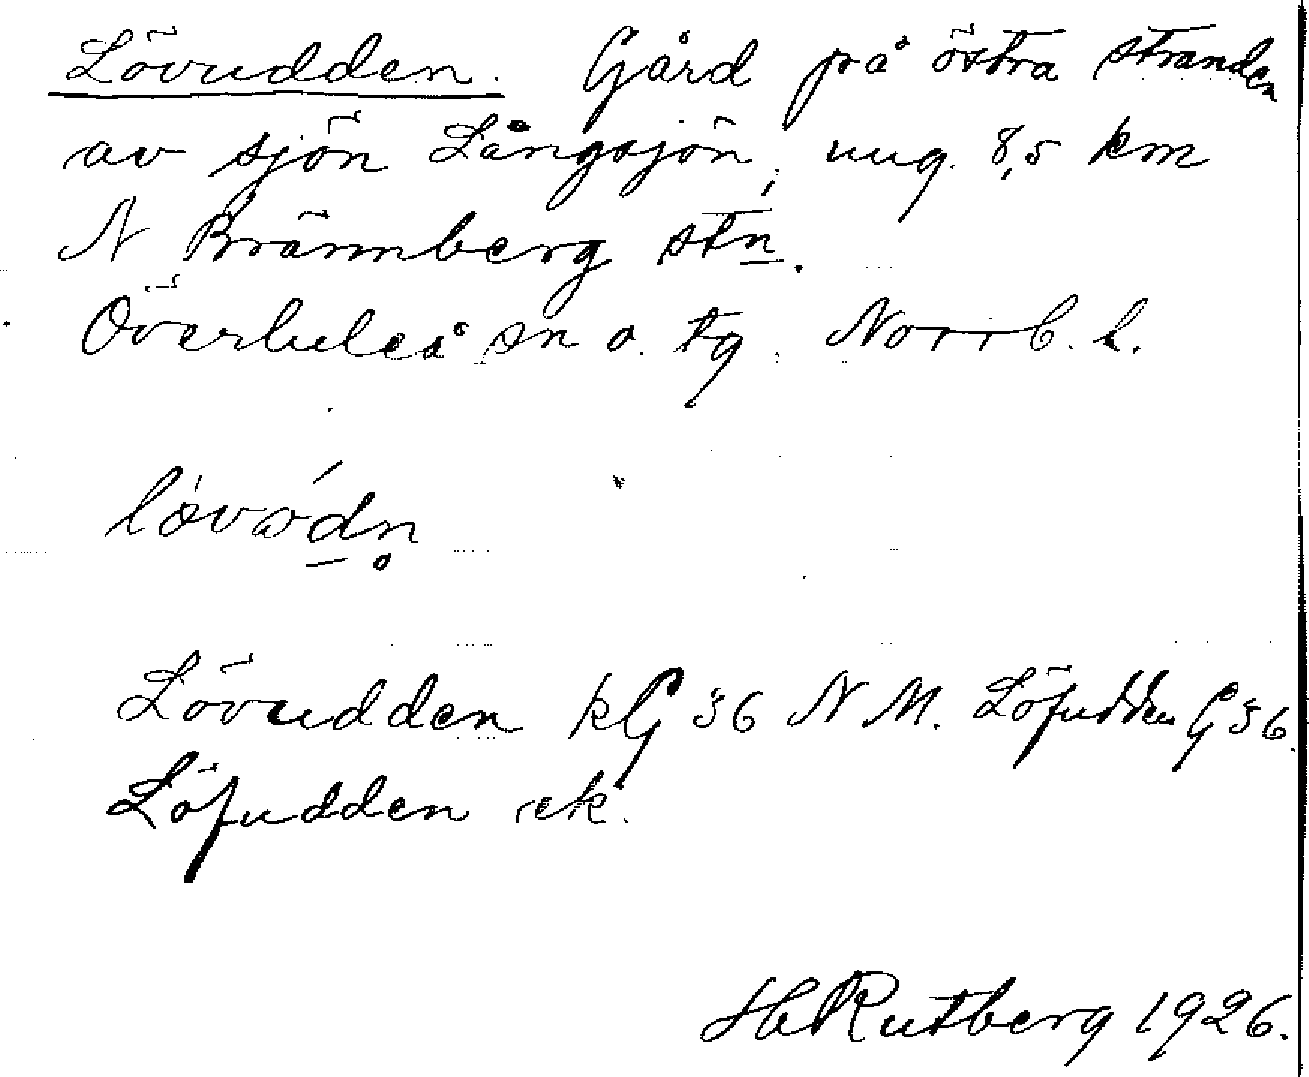 Lövudden. Gård på östra stranden
av sjön Långsjön, ung. 8,5 km
N Brännberg stn.
Överluleå sn o. tg. Norrb. l.
Lövudden kG 36 N M. Löfudden G 36.
Löfudden ek.
H Rutberg 1926.